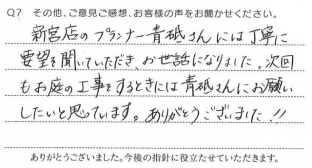 Q7 その他、ご意見ご感想、お客様の声をお聞かせください。
新宮店のプランナー青砥さんには丁寧に
要望を聞いていただき、お世話になりました。次回
もお庭の工事をするときには青砥さんにお願い
したいと思っています。ありがとうございました!!
ありがとうございました。今後の指針に役立たせていただきます。